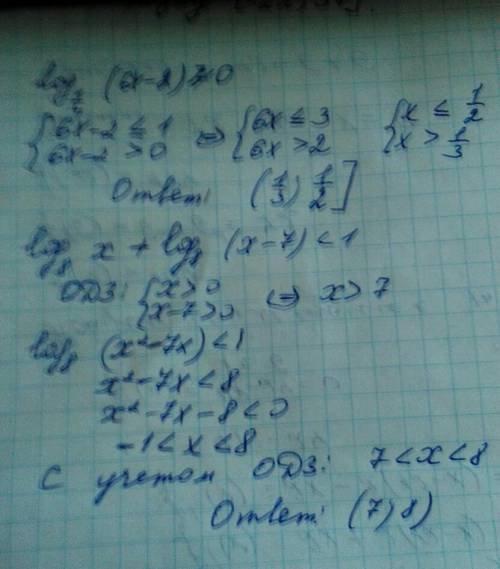 log (6x-2) ≥ 0
{6x-2 ≤ 1 ⇔ {6x ≤ 3 {x ≤ 1/2
{6x-2 > 0 {6x > 2 {x > 1/3
Ответ: (1/3; 1/2]
log₈ x + log₈ (x-7) < 1
ОДЗ: {x > 0 ⇔ x > 7
{x-7 > 0
log₈ (x²-7x) < 1
x²-7x < 8
x²-7x-8 < 0
-1 < x < 8
С учетом ОДЗ: 7 < x < 8
Ответ: (7; 8)